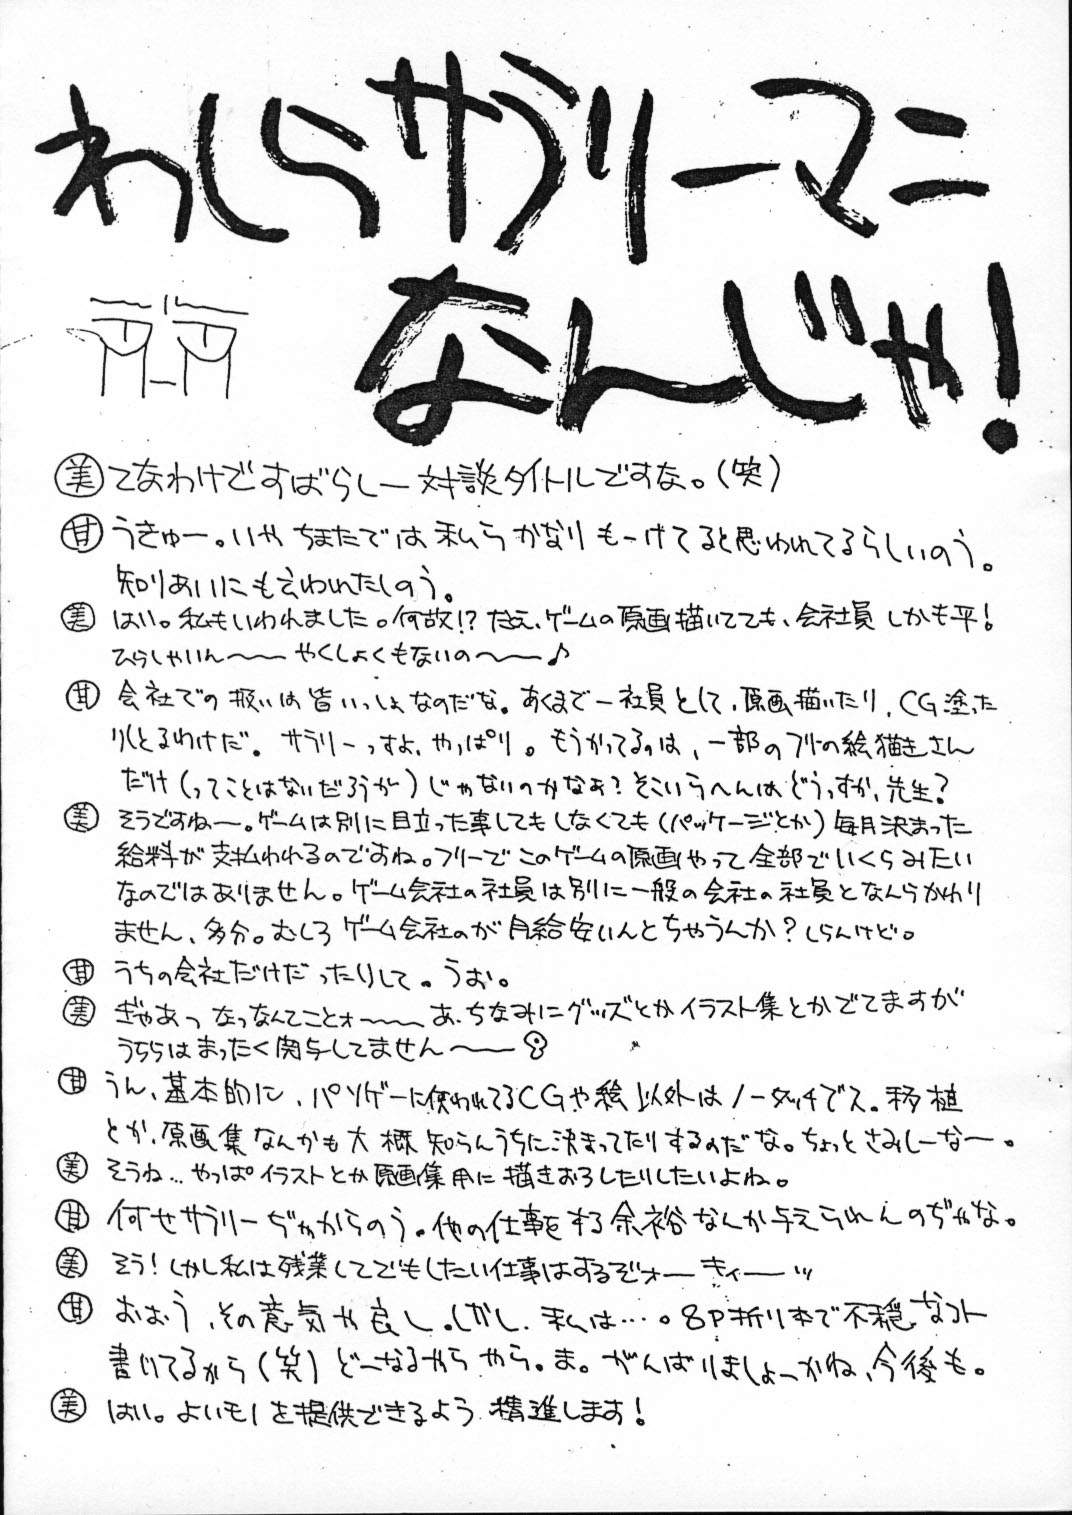 わしらサラリーマン
なんじゃ!
美 てなわけですばらしー対談タイトルですな。(笑)
甘 うきゅー。いやちまたでは私らかなりもーけてると思われてるらしいのう。
知りあいにも言われたしのう。
美 はい。私もいわれました。何故!? たとえ、ゲームの原画描いてても、会社員しかも平!
ひらしゃいん〜〜 やくしょくもないの〜〜♪
甘 会社での扱いは皆いっしょなのだな。あくまで一社員として、原画描いたり、CG塗った
りしとるわけだ。サラリーっすよ、やっぱり。もうかってるのは、一部のフリーの絵描きさん
だけ(ってことはないだろうが)じゃないのかなぁ?そこいらへんはどうっすか、先生?
美 そうですね〜。ゲームは別に目立った事してもしなくても(パッケージとか)毎月決まった
給料が支払われるのですね。フリーでこのゲームの原画やって全部でいくらみたい
なのではありません。ゲーム会社の社員は別に一般の会社の社員となんらかわり
ません、多分。むしろゲーム会社のが月給安いんとちゃうんか?しらんけど。
甘 うちの会社だけだったりして。うお。
美 ぎゃあっ なっなんてことォ〜〜 あ、ちなみにグッズとかイラスト集とかでてますが
うちらはまったく関与してません〜〜
甘 うん、基本的に、パソゲーに使われてるCGや絵以外はノータッチでス。移植
とか、原画集なんかも大概知らんうちに決まってたりするのだな。ちょっとさみしーなー。
美 そうね…やっぱイラストとか原画集用に描きおろしたりしたいよね。
甘 何せサラリーぢゃからのう。他の仕事をする余裕なんか与えられんのぢゃな。
美 そう!しかし私は残業してでもしたい仕事はするぞォー キィーッ
甘 おおう、その意気や良し。しかし、私は…。8P折り本で不穏なコト
書いてるから(笑)どーなるやらやら。ま。がんばりましょーかね、今後も。
美 はい。よいモノを提供できるよう、精進します!